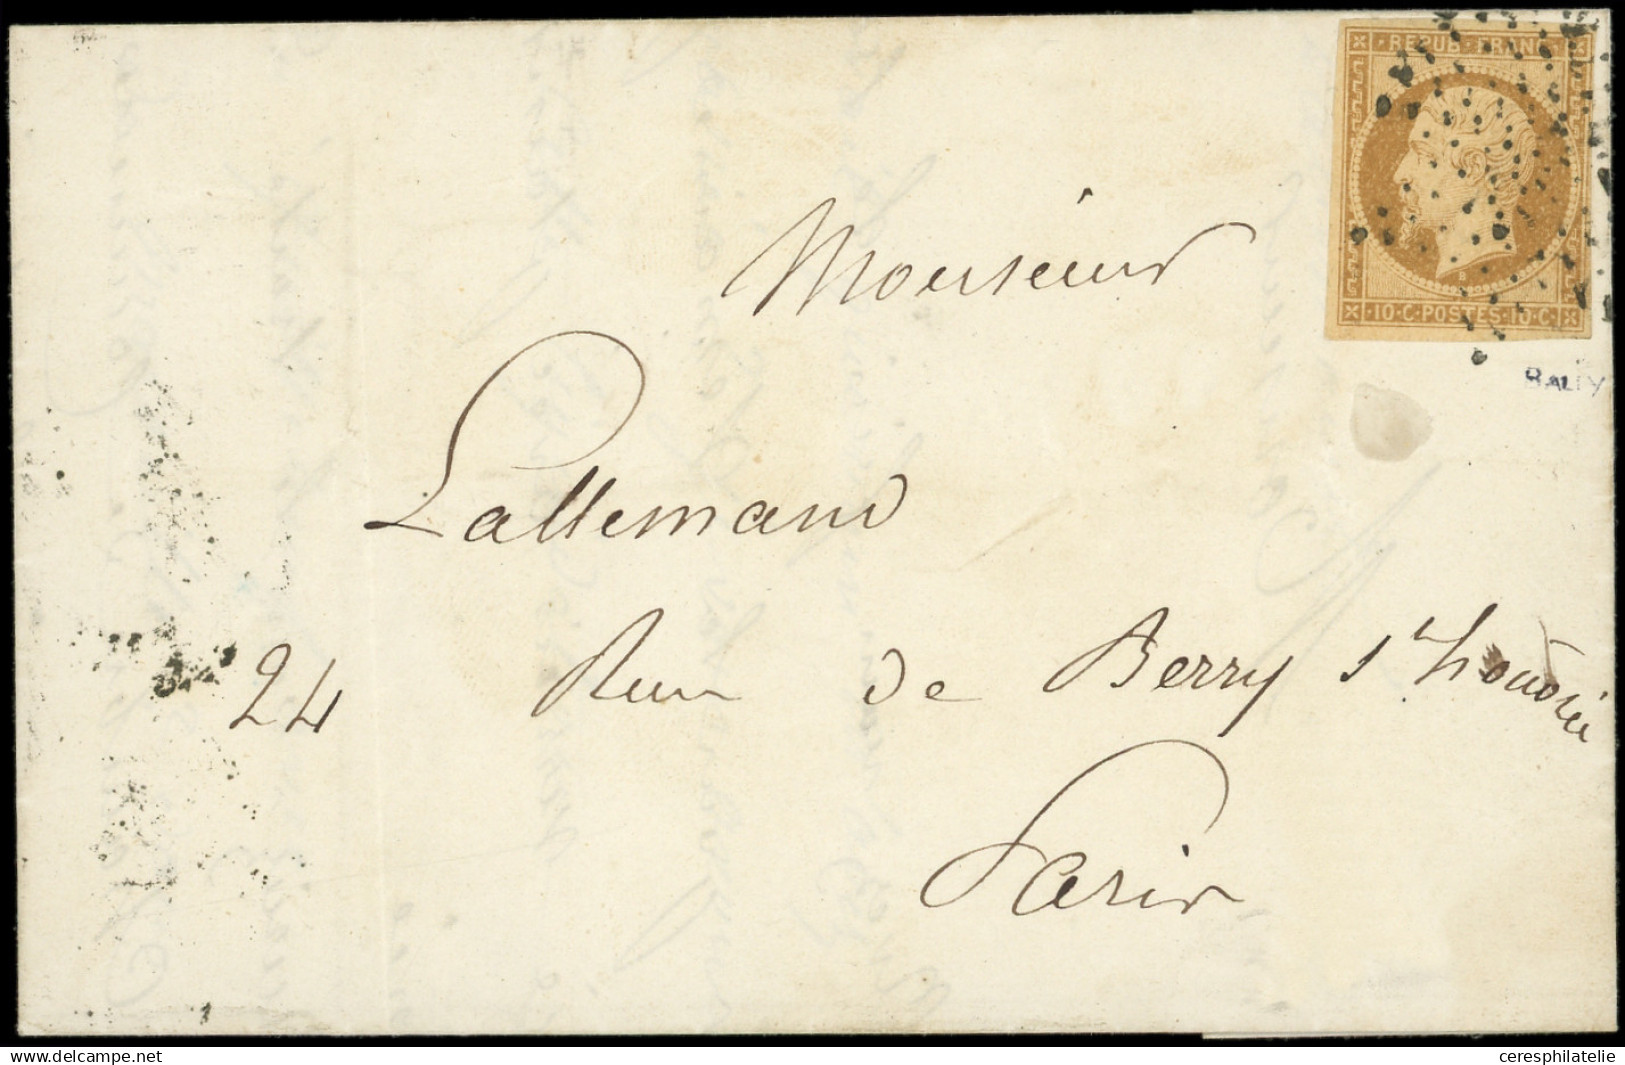 REPUB. FRANC.
B
10·C·POSTES·10·C
BALLY
Monsieur
Lallemand
24 Rue de Berry St honoré
Paris
www.delcampe.net
ceresphilatelie